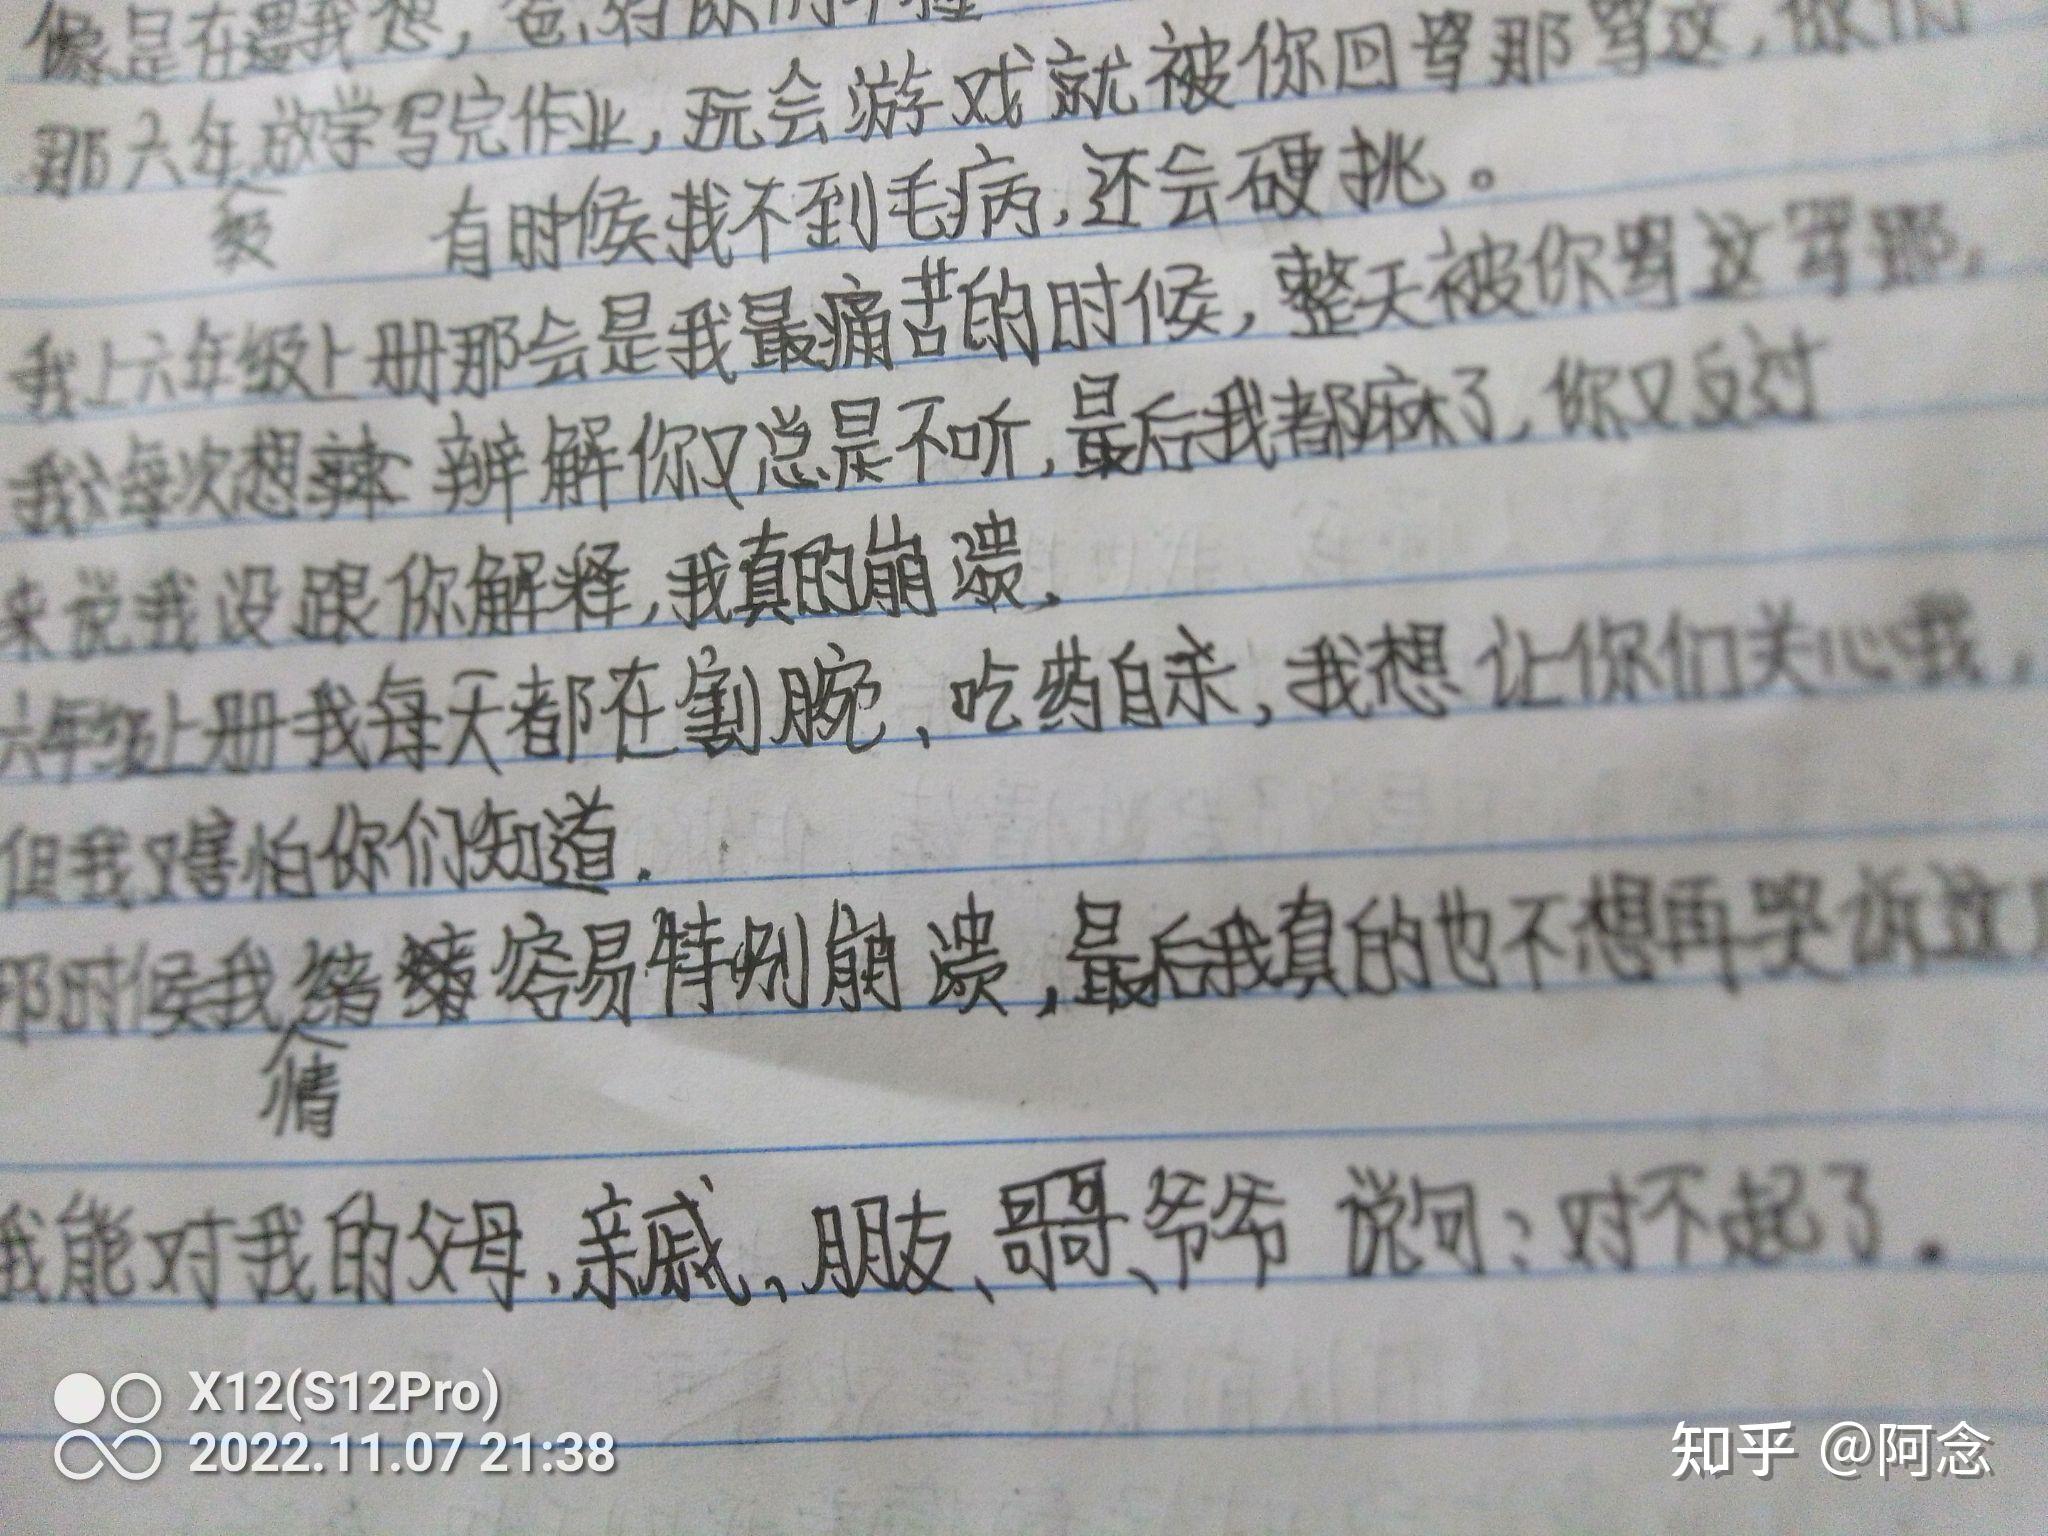 像是在
那六年放学写完作业，玩会游戏就被你回骂那骂这，你们
级
有时候找不到毛病，还会硬挑。
我上六年级上册那会是我最痛苦的时候，整天被你骂这骂那，
我每次想辨解你又总是不听，最后我都麻了，你又反过
来说我没跟你解释，我真的崩溃，
六年级上册我每天都在割腕、吃药自杀，我想让你们关心我，
但我又害怕你们知道.
那时候我绪容易特别崩溃，最后我真的也不想再哭诉这
情
我能对我的父母、亲戚、朋友、哥哥、爷爷说句：对不起了.
X12(S12Pro)
2022.11.07 21:38
知乎 @阿念